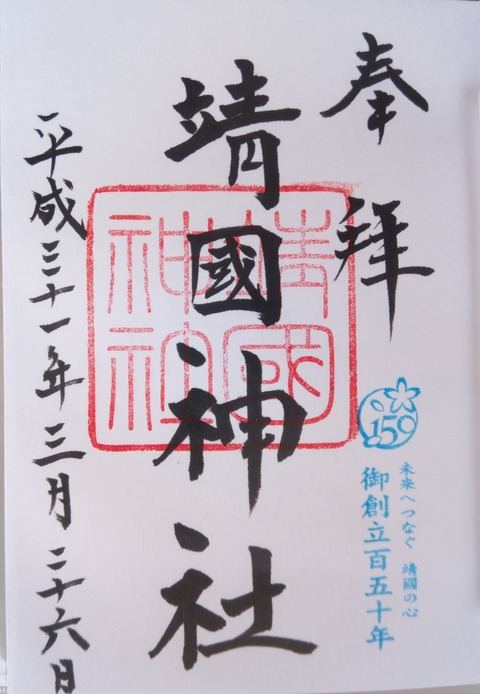 奉拜
150
未来へつなぐ 靖國の心
御創立百五十年
靖國神社
靖國
神社
平成三十一年三月二十六日